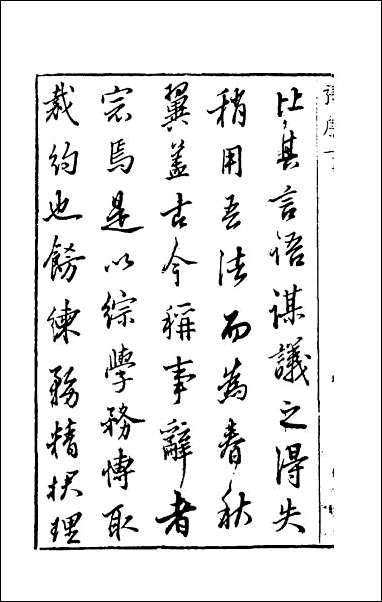 比其言語謀議之得失
稍用吾法而為春秋
翼蓋古今稱事辭者
宗焉是以綜學務博取
裁約也餝練務精捃理